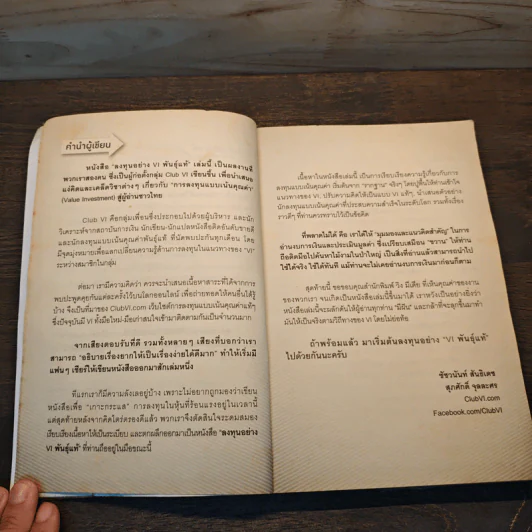 คำนำผู้เขียน
หนังสือ "ลงทุนอย่าง VI พันธุ์แท้" เล่มนี้ เป็นผลงานที่
พวกเราสองคน ซึ่งเป็นผู้ก่อตั้งกลุ่ม Club VI เขียนขึ้น เพื่อนำเสนอ
แง่คิดและเคล็ดวิชาต่างๆ เกี่ยวกับ "การลงทุนแบบเน้นคุณค่า"
(Value Investment) สู่ผู้อ่านชาวไทย
Club VI คือกลุ่มเพื่อนซึ่งประกอบไปด้วยผู้บริหาร และนัก
วิเคราะห์จากสถาบันการเงิน นักเขียน-นักแปลหนังสือติดอันดับขายดี
และนักลงทุนแบบเน้นคุณค่าพันธุ์แท้ ที่นัดพบปะกันทุกเดือน โดย
มีจุดมุ่งหมายเพื่อแลกเปลี่ยนความรู้ด้านการลงทุนในแนวทางของ "VI"
ระหว่างสมาชิกในกลุ่ม
ต่อมา เรามีความคิดว่า ควรจะนำเสนอเนื้อหาสาระที่ได้จากการ
พบปะพูดคุยกันแต่ละครั้งไว้บนโลกออนไลน์ เพื่อถ่ายทอดให้คนอื่นได้รู้
บ้าง จึงเป็นที่มาของ ClubVI.com เว็บไซต์การลงทุนแบบเน้นคุณค่าแท้ๆ
ซึ่งปัจจุบันมี VI ทั้งมือใหม่-มือเก่าสนใจเข้ามาติดตามกันเป็นจำนวนมาก
จากเสียงตอบรับที่ดี รวมทั้งหลายๆ เสียงที่บอกว่าเรา
สามารถ "อธิบายเรื่องยากให้เป็นเรื่องง่ายได้ดีมาก" ทำให้เริ่มมี
แฟนๆ เชียร์ให้เขียนหนังสือออกมาสักเล่มหนึ่ง
ทีแรกเราก็มีความลังเลอยู่บ้าง เพราะไม่อยากถูกมองว่าเขียน
หนังสือเพื่อ "เกาะกระแส" การลงทุนในหุ้นที่ร้อนแรงอยู่ในเวลานี้
แต่สุดท้ายหลังจากคิดใคร่ครองดีแล้ว พวกเราจึงตัดสินใจระดมสมอง
เรียบเรียงเนื้อหาให้เป็นระเบียบ และตกผลึกออกมาเป็นหนังสือ "ลงทุนอย่าง
VI พันธุ์แท้" ที่ท่านถืออยู่ในมือขณะนี้
เนื้อหาในหนังสือเล่มนี้ เป็นการเรียบเรียงความรู้เกี่ยวกับการ
ลงทุนแบบเน้นคุณค่า เริ่มต้นจาก "รากฐาน" จริงๆ โดยปูพื้นให้ท่านเข้าใจ
แนวทางของ VI ปรับความคิดให้เป็นแบบ VI แท้ๆ นำเสนอตัวอย่าง
นักลงทุนแบบเน้นคุณค่าที่ประสบความสำเร็จในระดับโลก รวมทั้งเรื่อง
ราวดีๆ ที่ท่านควรทราบไว้เป็นข้อคิด
ที่พลาดไม่ได้ คือ เราได้ให้ "มุมมองและแนวคิดสำคัญ" ในการ
อ่านงบการเงินและประเมินมูลค่า ซึ่งเปรียบเสมือน "ขวาน" ให้ท่าน
ถือติดมือไปค้นหาไม้งามในป่าใหญ่ เป็นสิ่งที่อ่านแล้วสามารถนำไป
ใช้ได้จริง ใช้ได้ทันที แม้ท่านจะไม่เคยอ่านงบการเงินมาก่อนก็ตาม
สุดท้ายนี้ ขอขอบคุณสำนักพิมพ์ วิง มีเดีย ที่เห็นคุณค่าของงาน
ของพวกเรา จนเกิดเป็นหนังสือเล่มนี้ขึ้นมาได้ เราหวังเป็นอย่างยิ่งว่า
หนังสือเล่มนี้จะผลักดันให้ผู้อ่านทุกท่าน "มีฝัน" และกล้าที่จะลุกขึ้นมาทำ
มันให้เป็นจริงตามวิถีทางของ VI โดยไม่ย่อท้อ
ถ้าพร้อมแล้ว มาเริ่มต้นลงทุนอย่าง "VI พันธุ์แท้"
ไปด้วยกันนะครับ
ชัชวนันท์ สันธิเดช
สุภศักดิ์ จุลละศร
ClubVI.com
Facebook.com/ClubVI